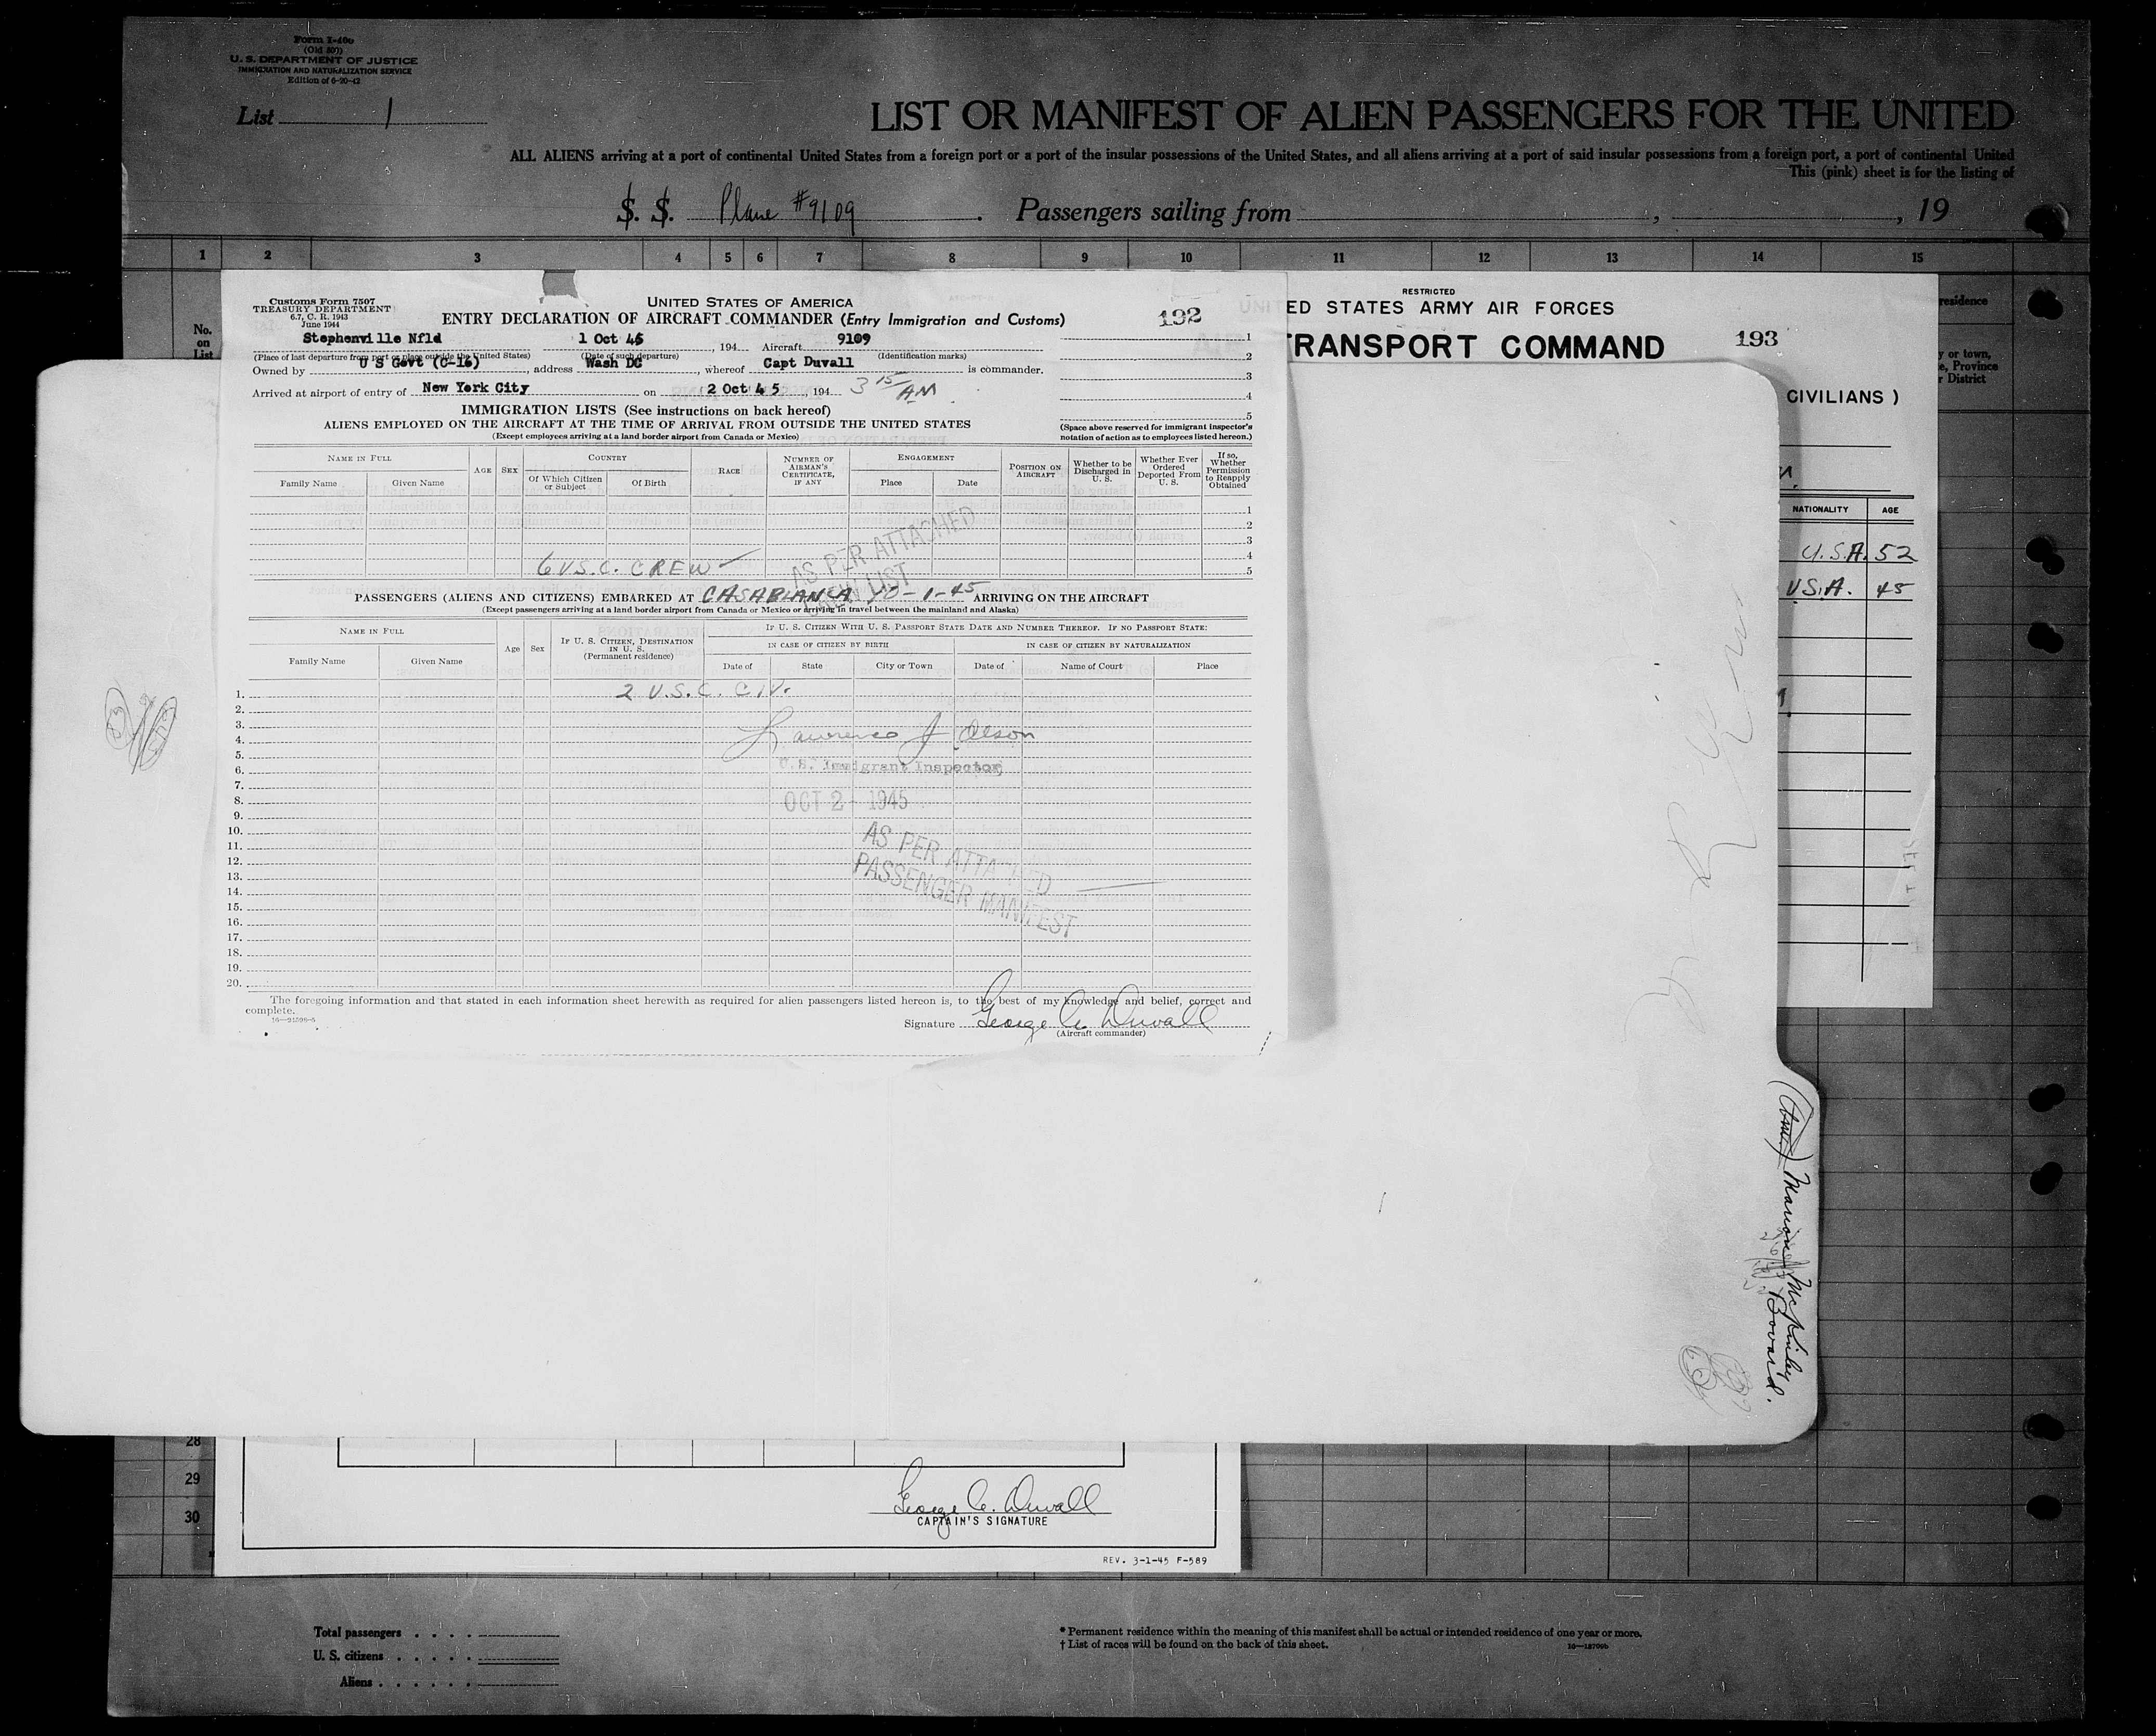 Form I-400
(Old 500)
U. S. DEPARTMENT OF JUSTICE
IMMIGRATION AND NATURALIZATION SERVICE
Edition of 6-20-42
List 1
LIST OR MANIFEST OF ALIEN PASSENGERS FOR THE UNITED
ALL ALIENS arriving at a port of continental United States from a foreign port or a port of the insular possessions of the United States, and all aliens arriving at a port of said insular possessions from a foreign port, a port of continental United
This (pink) sheet is for the listing of
S. S. Plane #9109. Passengers sailing from , , 19
1 2 3 4 5 6 7 8 9 10 11 12 13 14 15
No.
on
List
residence
y or town,
e, Province
r District
Customs Form 7507
TREASURY DEPARTMENT
6.7, C. R. 1943
June 1944
UNITED STATES OF AMERICA
ENTRY DECLARATION OF AIRCRAFT COMMANDER (Entry Immigration and Customs)
192
Stephenville Nfld 1 Oct 45, 194 Aircraft 9109
(Place of last departure from port or place outside the United States) (Date of such departure) (Identification marks)
Owned by U S Govt (C-16), address Wash DC, whereof Capt Duvall is commander.
Arrived at airport of entry of New York City on 2 Oct 45, 194 3 15 AM.
1
2
3
4
5
(Space above reserved for immigrant inspector's
notation of action as to employees listed hereon.)
IMMIGRATION LISTS (See instructions on back hereof)
ALIENS EMPLOYED ON THE AIRCRAFT AT THE TIME OF ARRIVAL FROM OUTSIDE THE UNITED STATES
(Except employees arriving at a land border airport from Canada or Mexico)
NAME IN FULL AGE SEX COUNTRY RACE NUMBER OF AIRMAN'S CERTIFICATE, IF ANY ENGAGEMENT POSITION ON AIRCRAFT Whether to be Discharged in U. S. Whether Ever Ordered Deported From U. S. If so, Whether Permission to Reapply Obtained
Family Name Given Name Of Which Citizen or Subject Of Birth Place Date
1
2
3
4
5
6 U.S.C. CREW
AS PER ATTACHED
CREW LIST
PASSENGERS (ALIENS AND CITIZENS) EMBARKED AT CASABLANCA 10-1-45 ARRIVING ON THE AIRCRAFT
(Except passengers arriving at a land border airport from Canada or Mexico or arriving in travel between the mainland and Alaska)
NAME IN FULL Age Sex IF U. S. CITIZEN, DESTINATION IN U. S. (Permanent residence) IF U. S. CITIZEN WITH U. S. PASSPORT STATE DATE AND NUMBER THEREOF. IF NO PASSPORT STATE:
IN CASE OF CITIZEN BY BIRTH IN CASE OF CITIZEN BY NATURALIZATION
Family Name Given Name Date of State City or Town Date of Name of Court Place
1. 2 U.S.C. CIV.
2.
3.
4. Lawrence J Olson
5.
6. U.S. Immigrant Inspector
7.
8. OCT 2 - 1945
9.
10. AS PER ATTACHED
11.
12. PASSENGER MANIFEST
13.
14.
15.
16.
17.
18.
19.
20.
The foregoing information and that stated in each information sheet herewith as required for alien passengers listed hereon is, to the best of my knowledge and belief, correct and
complete.
Signature George C. Duvall
(Aircraft commander)
RESTRICTED
UNITED STATES ARMY AIR FORCES
TRANSPORT COMMAND
193
CIVILIANS )
NATIONALITY AGE
U.S.A. 52
U.S.A. 45
Marion McKinley
Bovard.
28
29
30
George C. Duvall
CAPTAIN'S SIGNATURE
REV. 3-1-45 F-589
Total passengers . . . .
U. S. citizens . . . . .
Aliens . . . . . .
* Permanent residence within the meaning of this manifest shall be actual or intended residence of one year or more.
† List of races will be found on the back of this sheet.